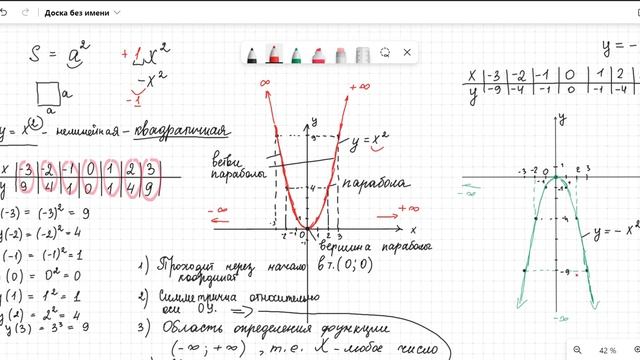 Доска без имени
S = a²
+1 x²
-x²
-1
a
a
y = x² - нелинейная - квадратичная
x | -3 | -2 | -1 | 0 | 1 | 2 | 3
y | 9 | 4 | 1 | 0 | 1 | 4 | 9
(-3) = (-3)² = 9
y(-2) = (-2)² = 4
(-1) = (-1)² = 1
(0) = 0² = 0
y(1) = 1² = 1
y(2) = 2² = 4
y(3) = 3³ = 9
∞
+∞
y
9
y = x²
ветви параболы
4
парабола
-∞
+∞
-3 -2 -1 0 1 2 3
x
вершина параболы
1) Проходит через начало координат в т. (0; 0)
2) Симметрична относительно оси OY.
3) Область определения функции
(-∞; +∞), т.е. X - любое число
y = -
x | -3 | -2 | -1 | 0 | 1 | 2
y | -9 | -4 | -1 | 0 | -1 | -4
y
-3 -2 -1 1 2 3
-∞
-1
-4
y = -x²
-9
-∞
42 %